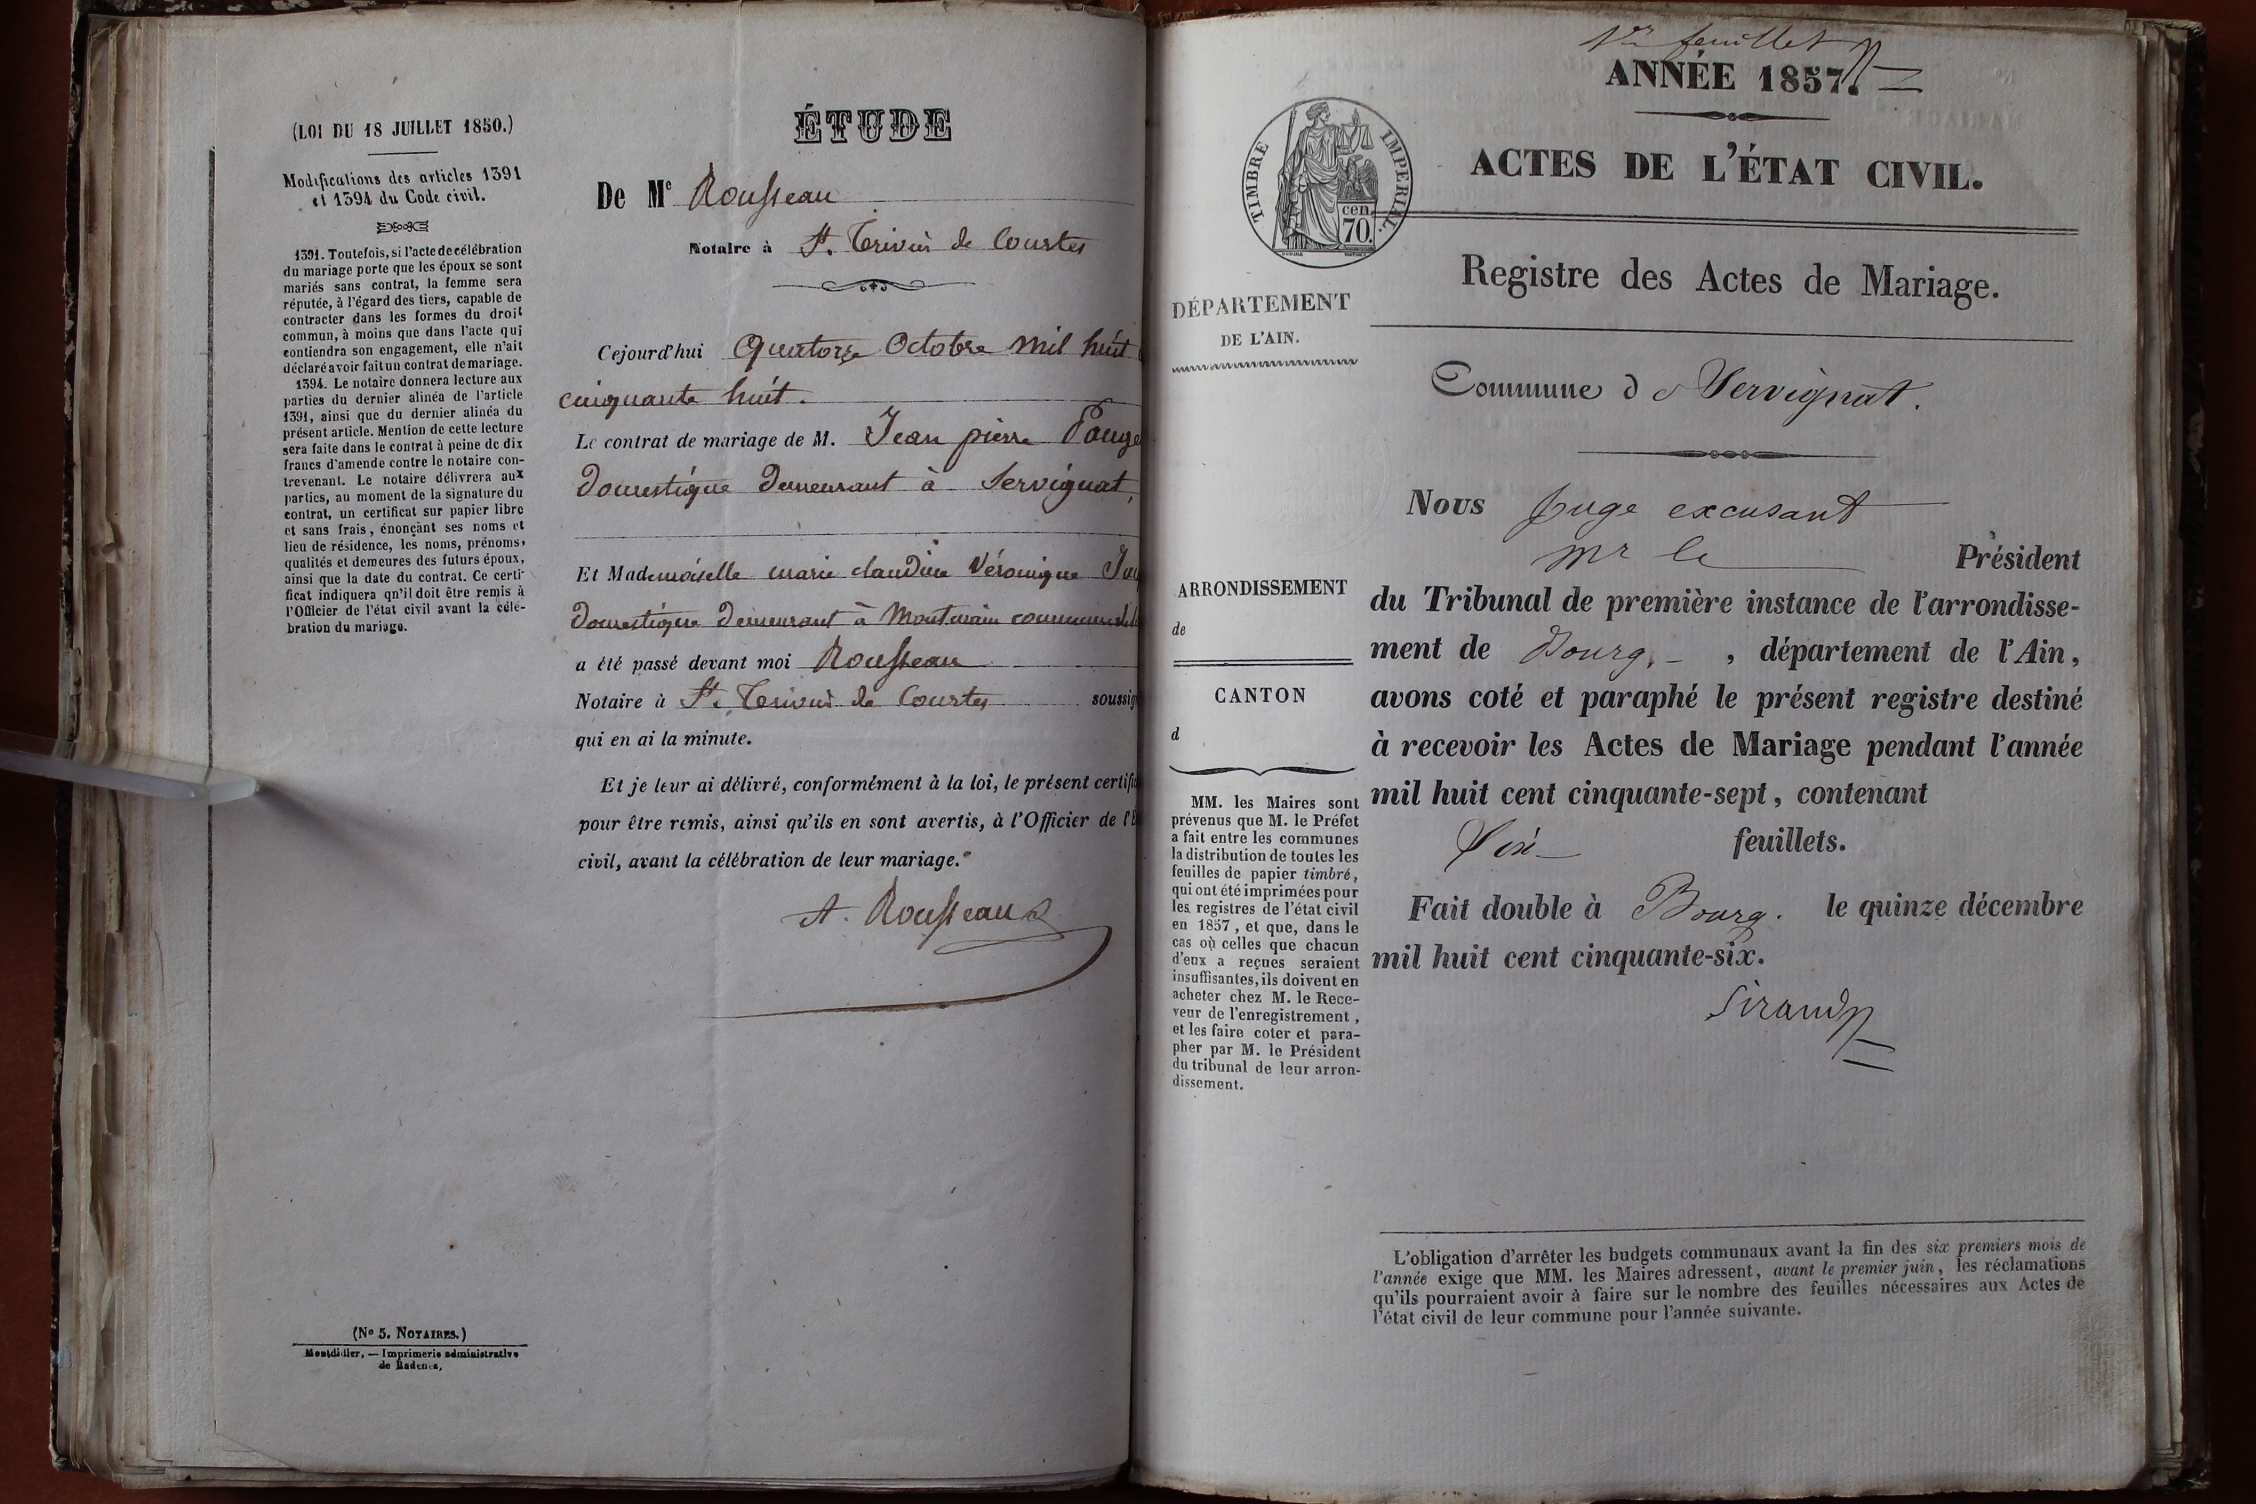 (LOI DU 18 JUILLET 1850.)
Modifications des articles 1391
et 1394 du Code civil.
1391. Toutefois, si l'acte de célébration
du mariage porte que les époux se sont
mariés sans contrat, la femme sera
réputée, à l'égard des tiers, capable de
contracter dans les formes du droit
commun, à moins que dans l'acte qui
contiendra son engagement, elle n'ait
déclaré avoir fait un contrat de mariage.
1394. Le notaire donnera lecture aux
parties du dernier alinéa de l'article
1391, ainsi que du dernier alinéa du
présent article. Mention de cette lecture
sera faite dans le contrat à peine de dix
francs d'amende contre le notaire con-
trevenant. Le notaire délivrera aux
parties, au moment de la signature du
contrat, un certificat sur papier libre
et sans frais, énonçant ses noms et
lieu de résidence, les noms, prénoms,
qualités et demeures des futurs époux,
ainsi que la date du contrat. Ce certi-
ficat indiquera qu'il doit être remis à
l'Officier de l'état civil avant la célé-
bration du mariage.
(N° 5. NOTAIRES.)
Montdidier, — Imprimerie administrative
de Radenez,
ÉTUDE
De Me Rousseau
Notaire à St. Trivier de Courtes
Cejourd'hui Quatorze Octobre mil huit
cinquante huit.
Le contrat de mariage de M. Jean pierre
Domestique demeurant à Servignat,
Et Mademoiselle marie claudine Véronique
Domestique demeurant à
a été passé devant moi Rousseau
Notaire à St. Trivier de Courtes soussig
qui en ai la minute.
Et je leur ai délivré, conformément à la loi, le présent certific
pour être remis, ainsi qu'ils en sont avertis, à l'Officier de l'É
civil, avant la célébration de leur mariage.
A. Rousseau
1er feuillet
ANNÉE 1857.
TIMBRE IMPERIAL.
cen.
70.
ACTES DE L'ÉTAT CIVIL.
Registre des Actes de Mariage.
DÉPARTEMENT
DE L'AIN.
Commune de Servignat.
Nous Juge excusant
Mr le Président
ARRONDISSEMENT
de
CANTON
d
du Tribunal de première instance de l'arrondisse-
ment de Bourg, , département de l'Ain,
avons coté et paraphé le présent registre destiné
à recevoir les Actes de Mariage pendant l'année
mil huit cent cinquante-sept, contenant
Six feuillets.
Fait double à Bourg. le quinze décembre
mil huit cent cinquante-six.
Sirand
MM. les Maires sont
prévenus que M. le Préfet
a fait entre les communes
la distribution de toutes les
feuilles de papier timbré,
qui ont été imprimées pour
les registres de l'état civil
en 1857, et que, dans le
cas où celles que chacun
d'eux a reçues seraient
insuffisantes, ils doivent en
acheter chez M. le Rece-
veur de l'enregistrement,
et les faire coter et para-
pher par M. le Président
du tribunal de leur arron-
dissement.
L'obligation d'arrêter les budgets communaux avant la fin des six premiers mois de
l'année exige que MM. les Maires adressent, avant le premier juin, les réclamations
qu'ils pourraient avoir à faire sur le nombre des feuilles nécessaires aux Actes de
l'état civil de leur commune pour l'année suivante.